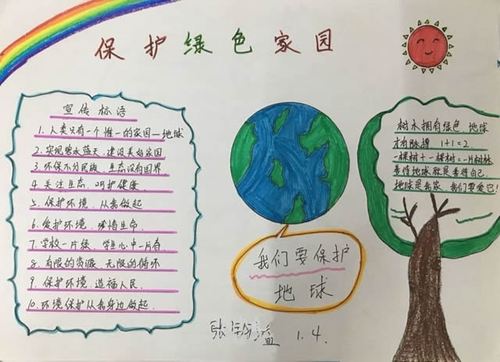 保护绿色家园
宣传标语
1.人类只有一个唯一的家园—地球
2.实现碧水蓝天 建设美好家园
3.环保不分民族 生态没有国界
4.关注生态 呵护健康
5.保护环境 从我做起
6.爱护环境 珍惜生命
7.学校一片绿 学生心中一片
8.有限的资源 无限的循环
9.保护环境 造福人民
10.环境保护从我身边做起
我们要保护
地球
树木拥有绿色 地球
才有脉搏 1+1=2
一棵树+一棵树=一片树林
善待地球就是善待自己
地球是我家 我们要爱它!
1.4.